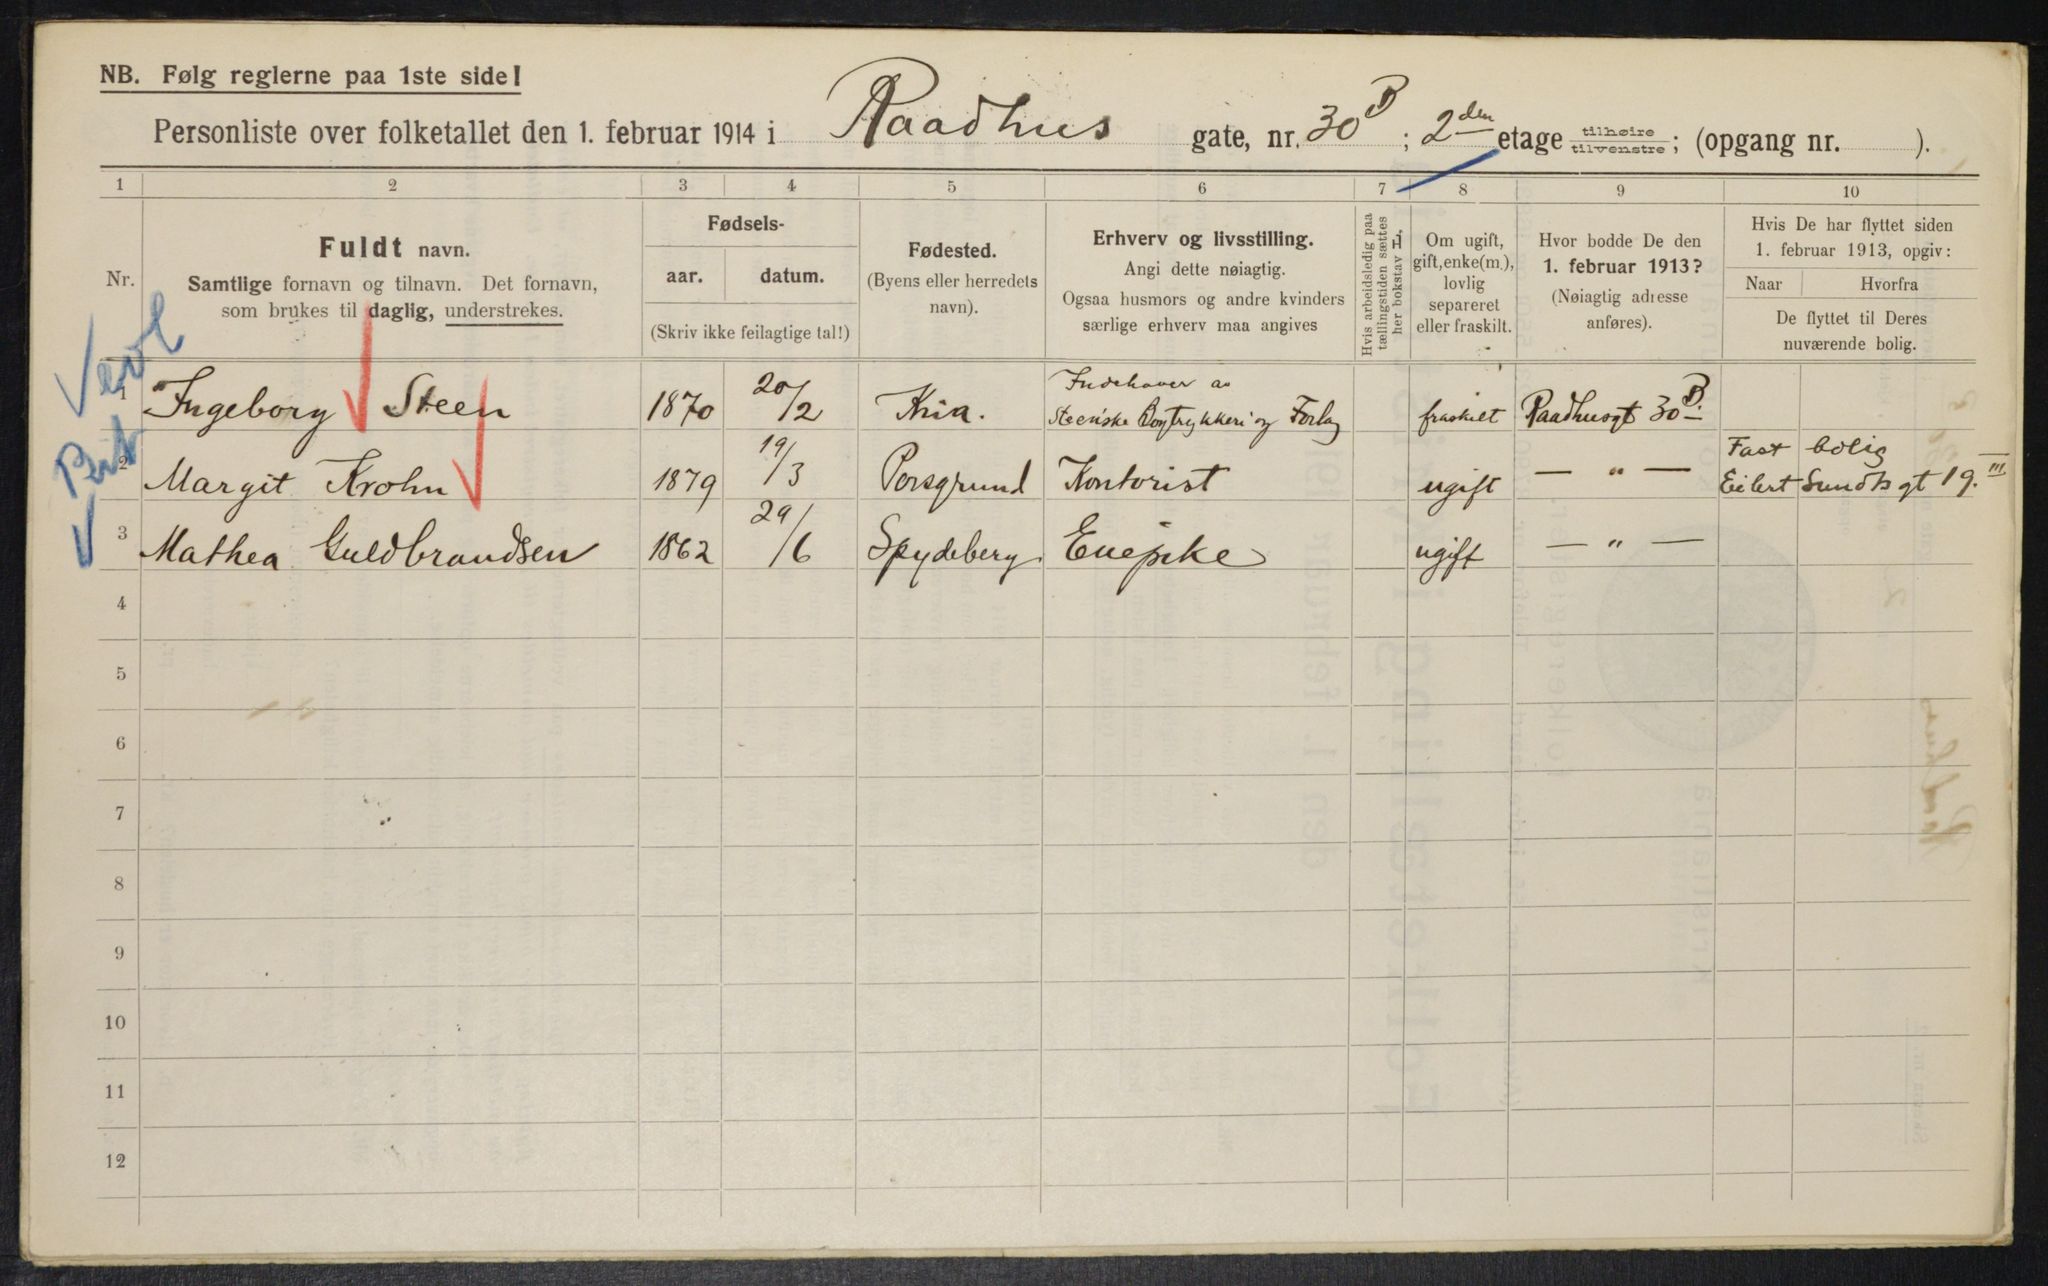 NB. Følg reglerne paa 1ste side!
Personliste over folketallet den 1. februar 1914 i Raadhus gate, nr. 30 B; 2den etage tilhøire tilvenstre; (opgang nr. ).
1 2 3 4 5 6 7 8 9 10
Nr.
Fuldt navn.
Samtlige fornavn og tilnavn. Det fornavn,
som brukes til daglig, understrekes.
Fødsels-
aar. datum.
(Skriv ikke feilagtige tal!)
Fødested.
(Byens eller herredets
navn).
Erhverv og livsstilling.
Angi dette nøiagtig.
Ogsaa husmors og andre kvinders
særlige erhverv maa angives
Hvis arbeidsledig paa
tællingstiden sættes
her bokstav L.
Om ugift,
gift, enke(m.),
lovlig
separeret
eller fraskilt.
Hvor bodde De den
1. februar 1913?
(Nøiagtig adresse
anføres).
Hvis De har flyttet siden
1. februar 1913, opgiv:
Naar Hvorfra
De flyttet til Deres
nuværende bolig.
1 Ingeborg Steen 1870 20/2 Kria. Indehaver av
Steenske Bogtrykkeri og Forlag fraskilt Raadhusgt 30 B.
2 Margit Krohn 1879 19/3 Porsgrund Kontorist ugift — " — Fast bolig
Eilert Sundts gt 19. III
3 Mathea Guldbrandsen 1862 29/6 Spydeberg Enepike ugift — " —
4
5
6
7
8
9
10
11
12